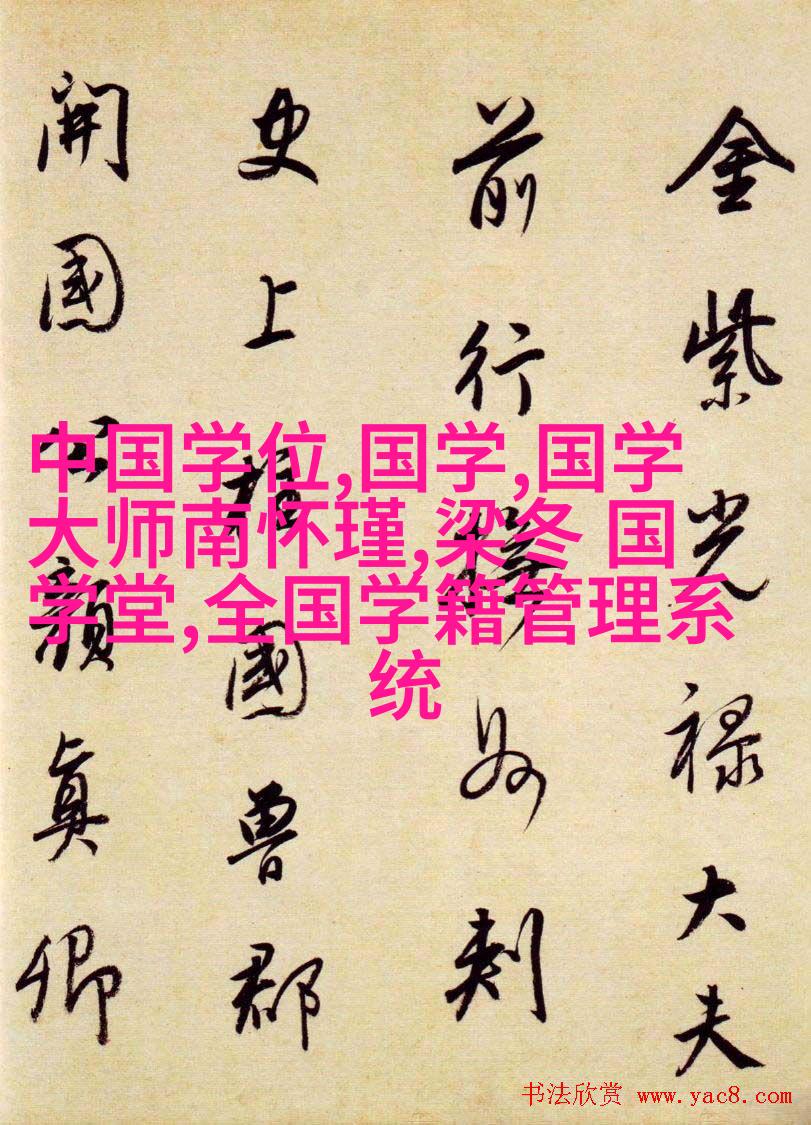 金紫光禄大夫
前行州刺
史上國魯郡
開國顏眞卿
中国学位,国学,国学
大师南怀瑾,梁冬 国
学堂,全国学籍管理系
统
书法欣赏 www.yac8.com